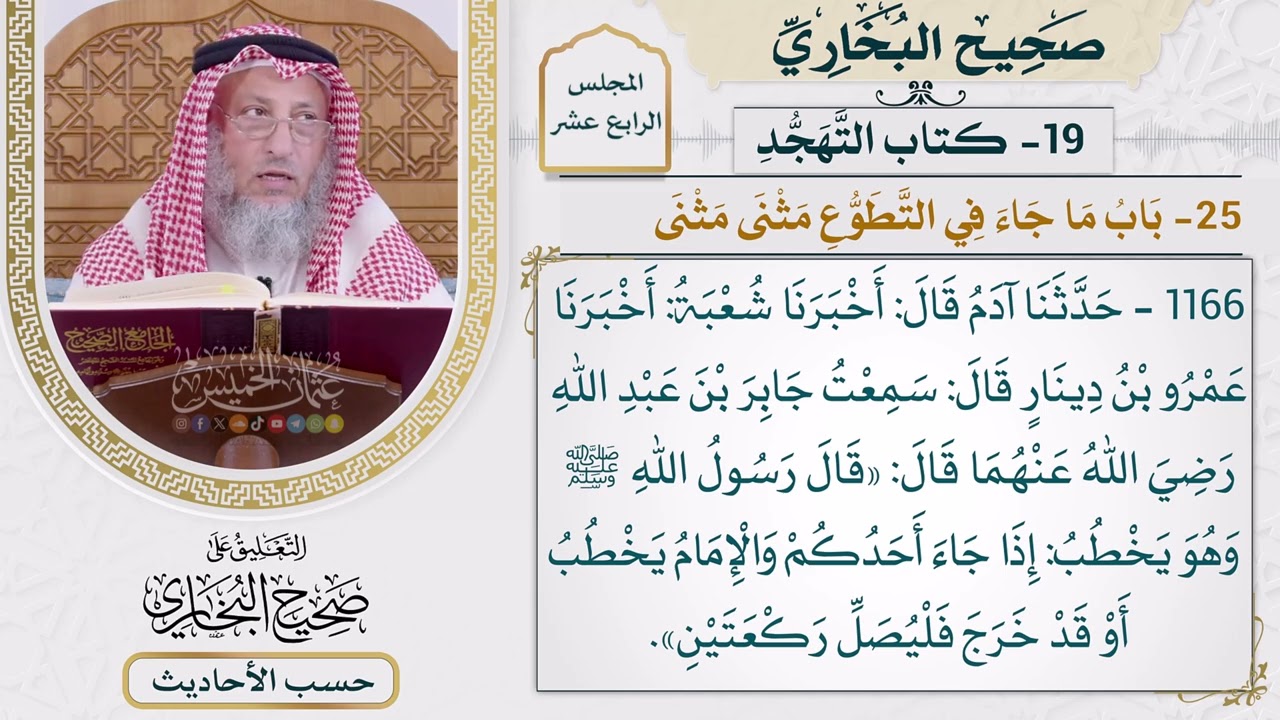 صَحِيحُ البُخَارِيِّ
المجلس
الرابع عشر
19- كتاب التَّهَجُّدِ
25- بَابُ مَا جَاءَ فِي التَّطَوُّعِ مَثْنَى مَثْنَى
1166 - حَدَّثَنَا آدَمُ قَالَ: أَخْبَرَنَا شُعْبَةُ: أَخْبَرَنَا
عَمْرُو بْنُ دِينَارٍ قَالَ: سَمِعْتُ جَابِرَ بْنَ عَبْدِ اللهِ
رَضِيَ اللهُ عَنْهُمَا قَالَ: «قَالَ رَسُولُ اللهِ ﷺ
وَهُوَ يَخْطُبُ: إِذَا جَاءَ أَحَدُكُمْ وَالْإِمَامُ يَخْطُبُ
أَوْ قَدْ خَرَجَ فَلْيُصَلِّ رَكْعَتَيْنِ».
الجامع الصحيح
عثمان الخميس
التَّعْلِيقُ عَلَى
صَحِيحِ البُخَارِي
حسب الأحاديث